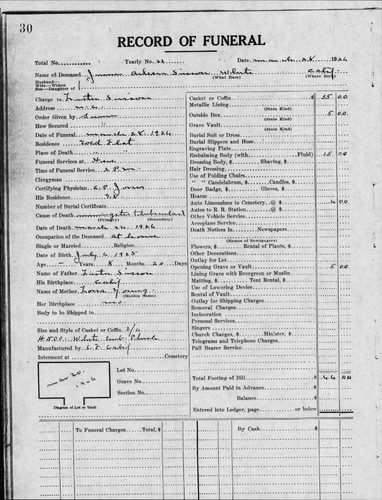 30
RECORD OF FUNERAL
Total No. Yearly No. 22 Date March 28, 1926
Name of Deceased White Calif
(What Race) (Where Born)
Husband of
Wife or Widow
Son or Daughter of
Charge to Lester Sisson
Address
Order Given by
How Secured
Date of Funeral March 28, 1926
Residence Flat
Place of Death
Funeral Services at Here
Time of Funeral Services 2 P.M.
Clergyman
Certifying Physician Jones
His Residence
Number of Burial Certificate
Cause of Death (Tubercular)
(Primary) (Secondary)
Date of Death March 26, 1926
Occupation of the Deceased At home
Single or Married Religion
Date of Birth July 6, 1925
Age Years 8 Months 20 Days
Name of Father Lester Sisson
His Birthplace Calif
Name of Mother Young
(Maiden Name)
Her Birthplace
Body to be Shipped to
Size and Style of Casket or Coffin 2/6
White Plush
Manufactured by Calif
Interment at Cemetery
Lot No.
Grave No.
Section No.
1926
Diagram of Lot or Vault
Casket or Coffin 35 00
Metallic Lining
(State Kind)
Outside Box 5 00
(State Kind)
Grave Vault
(State Kind)
Burial Suit or Dress
Burial Slippers and Hose
Engraving Plate
Embalming Body (with Fluid) 15 00
Dressing Body, $ Shaving, $
Hair Dressing
Use of Folding Chairs
" " Candelabrum, $ Candles, $
Door Badge, $ Gloves, $
Hearse
Auto Limousines to Cemetery @ $ 6 00
Autos to R. R. Station @ $
Other Vehicle Service
Aeroplane Service
Death Notices in Newspapers
(Names of Newspapers)
Flowers, $ Rental of Plants, $
Other Decorations
Outlay for Lot
Opening Grave or Vault 5 00
Lining Grave with Evergreen or Muslin
Matting, $ Tent Rental, $
Use of Lowering Device
Rental of Vault
Outlay for Shipping Charges
Removal Charges
Incineration
Personal Services
Singers
Church Charges, $ Minister, $
Telegrams and Telephone Charges
Pall Bearer Service
Total Footing of Bill $ 66 00
By Amount Paid in Advance
Balance
Entered into Ledger, page or below
To Funeral Charges Total, $ By Cash $